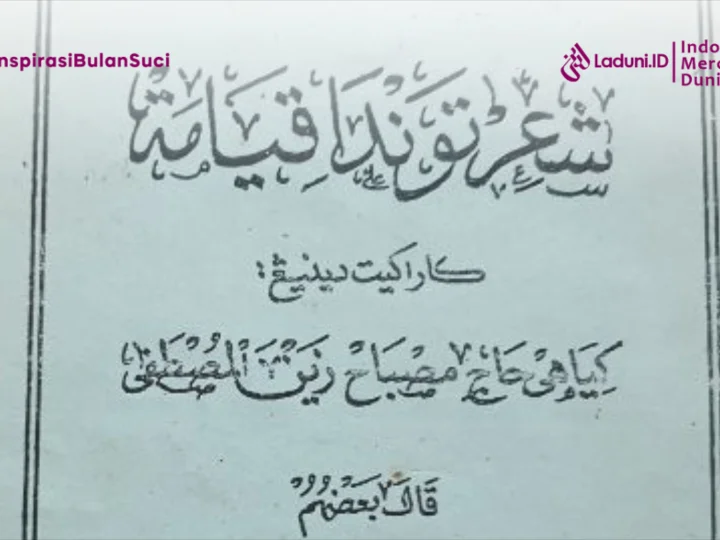 nspirasiBulanSuci
Laduni.ID
Indo
Mer
Duni
شَعِرْ تَوْندَا قِيَامَةْ
كاراكيت دينيڠ:
كِيَاهِيْ حَاجْ مِصْبَاحْ زَيْنِ الْمُصْطَفَى
قَالَ بَعْضُهُمْ